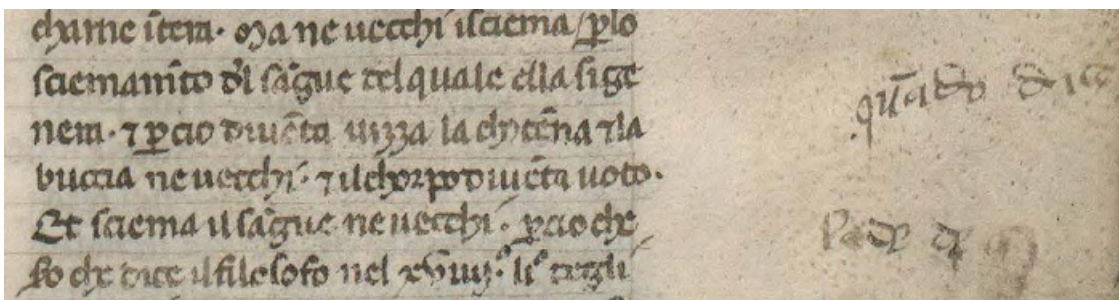 charne ītera· Ma ne uecchi ilsciema / ꝑlo
sciemamīto dl sāgue delquale ella sige
nera· ⁊ ꝑcio diuēta uizza la chotēna ⁊ la
buccia ne uecchi· ⁊ ilchorpo diuēta uoto·
Et sciema il sāgue ne uecchi· ꝑcio che
so che dice ilfilosofo nel xviiij° li° degli